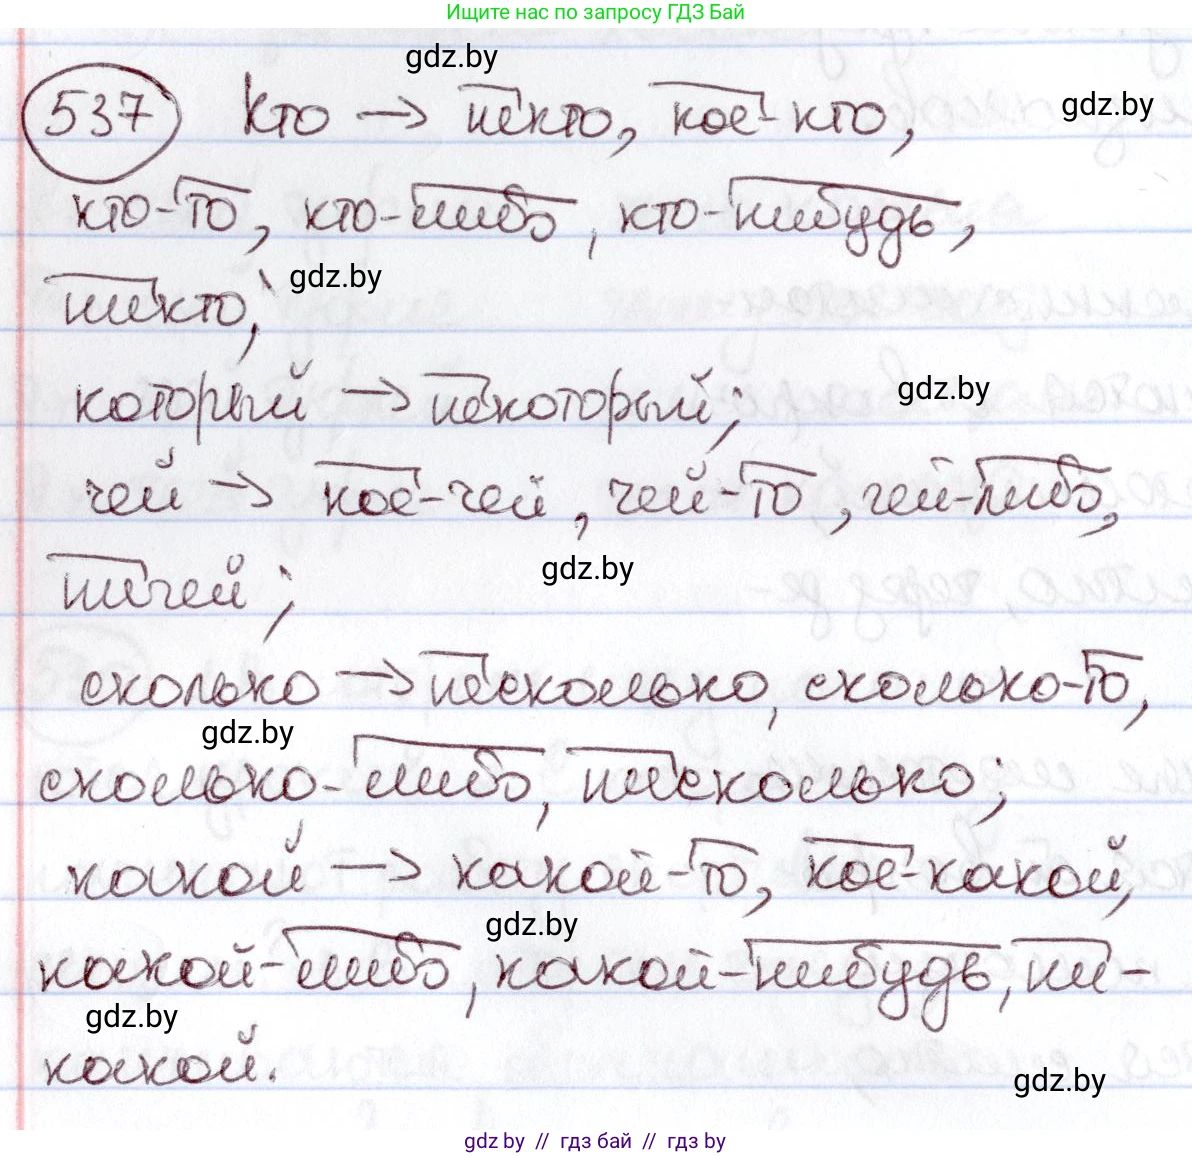 Ищите нас по запросу ГДЗ Бай
gdz.by
537 Кто → некто, кое-кто,
gdz.by
кто-то, кто-либо, кто-нибудь,
gdz.by
никто;
который → некоторый;
gdz.by
чей → кое-чей, чей-то, чей-либо,
ничей;
gdz.by
сколько → несколько, сколько-то,
gdz.by
сколько-либо, нисколько;
какой → какой-то, кое-какой,
gdz.by
какой-либо, какой-нибудь, ни-
gdz.by
какой.
gdz.by
gdz.by // гдз бай // гдз by